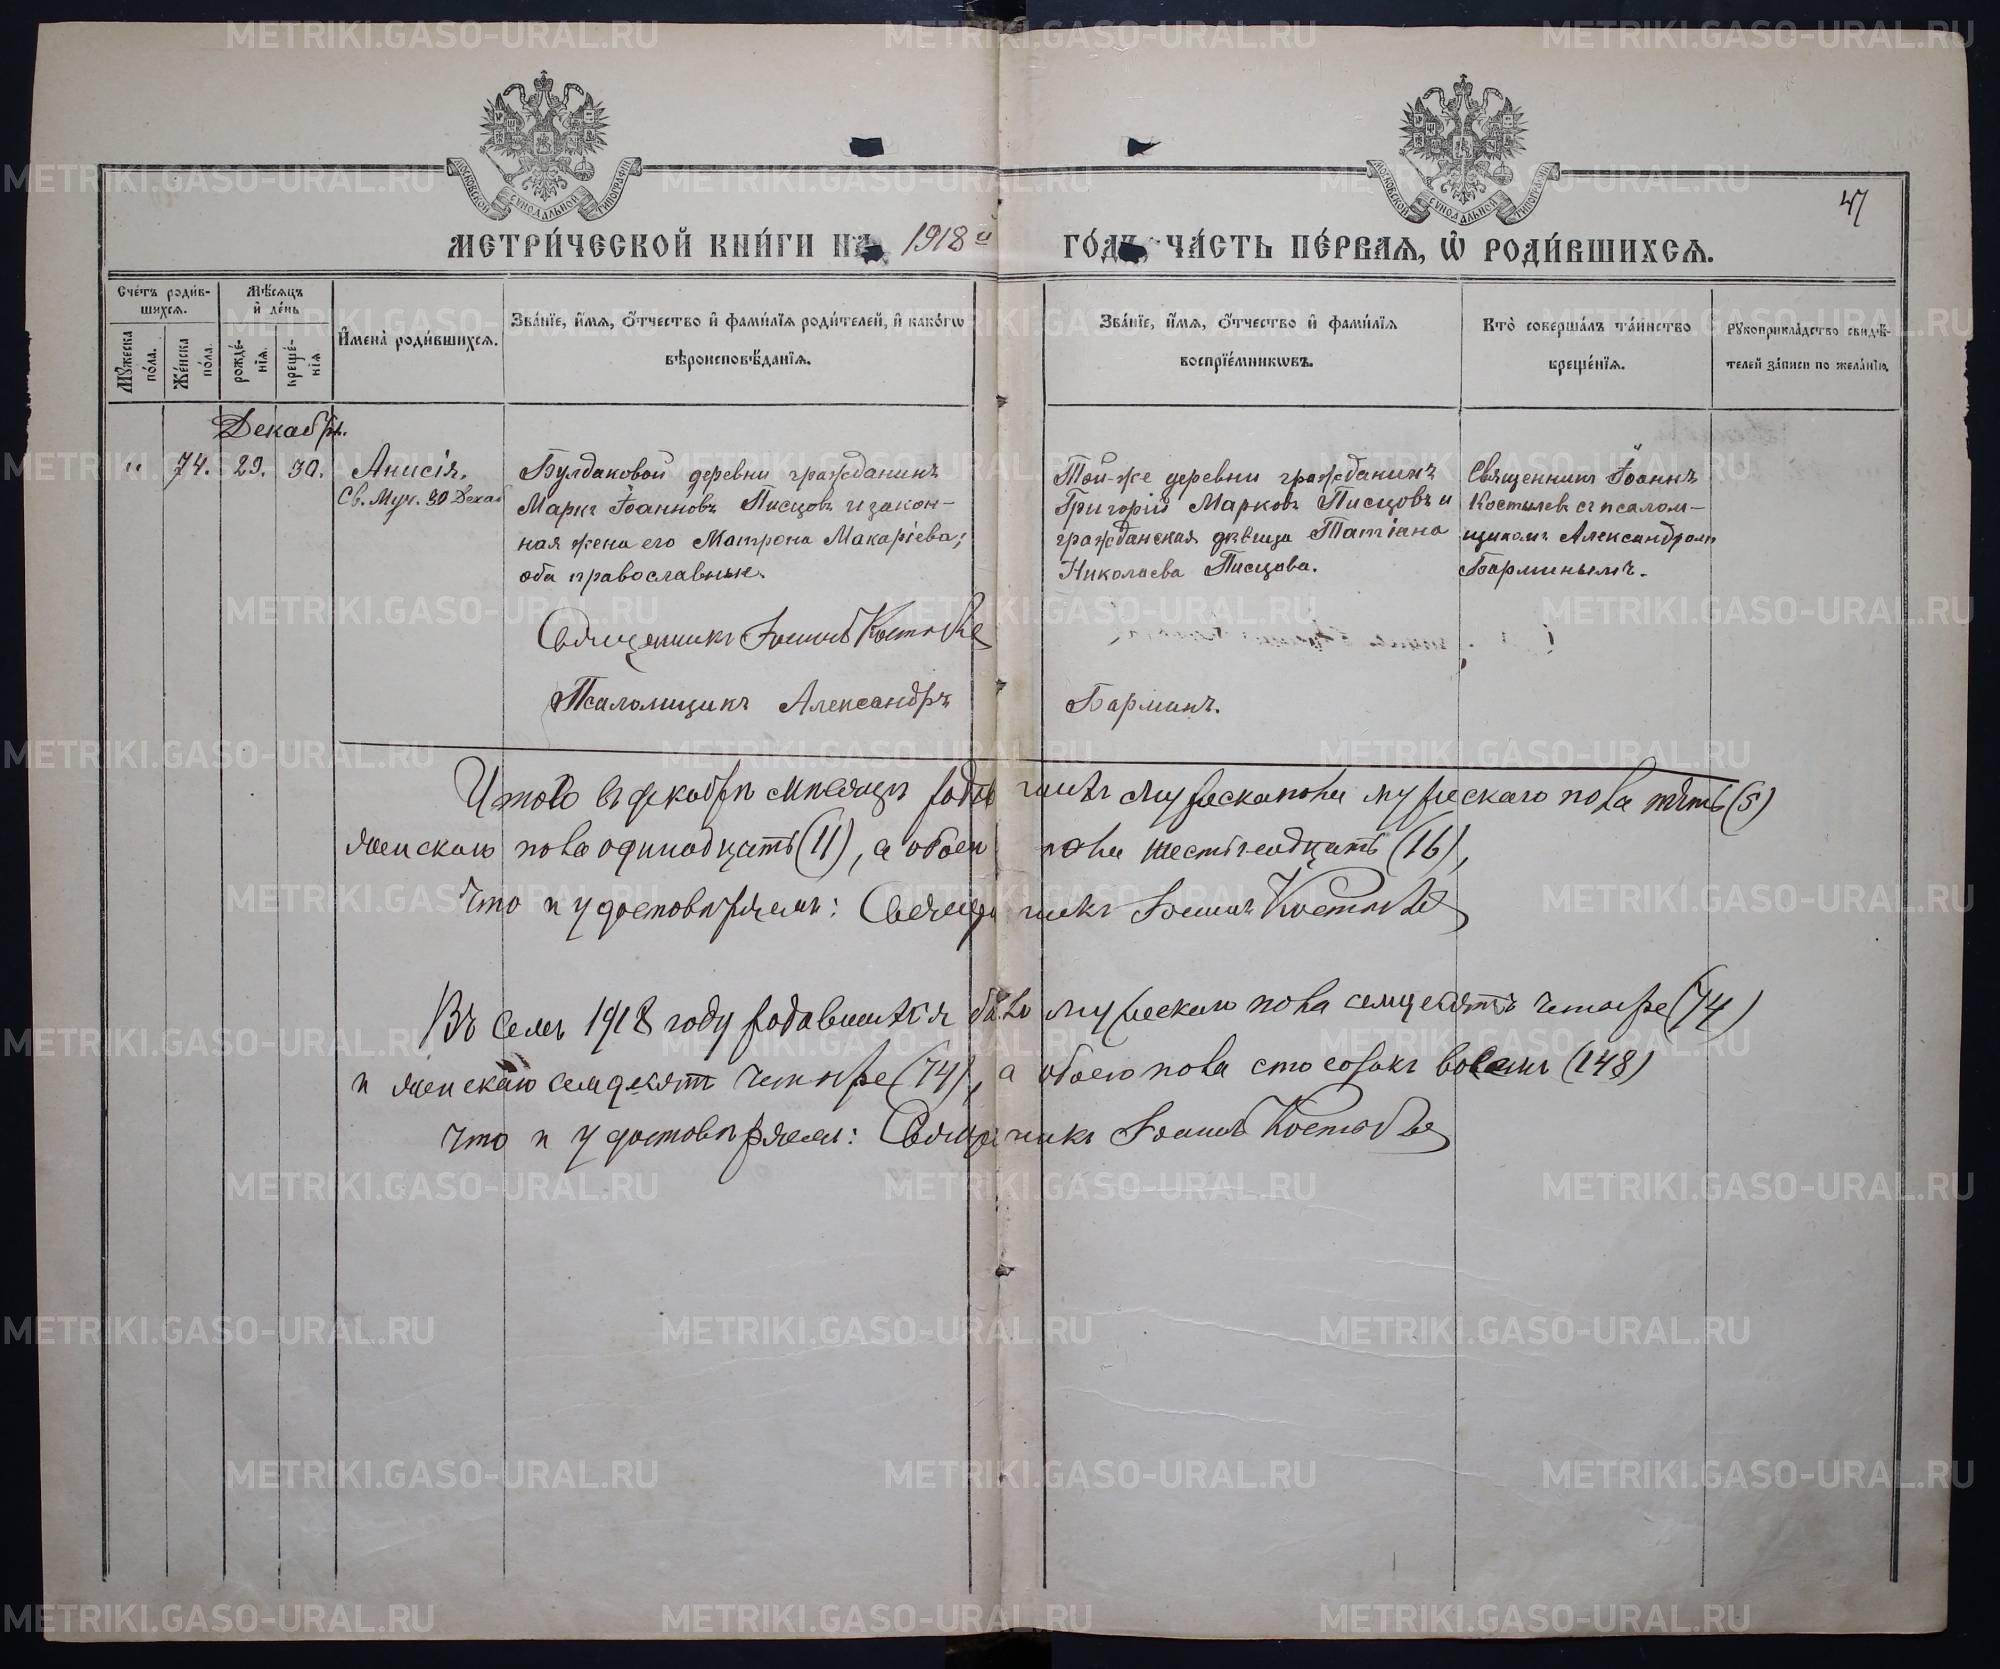 МОСКОВСКОЙ СУНОДАЛЬНОЙ ТИПОГРАФІИ
МОСКОВСКОЙ СУНОДАЛЬНОЙ ТИПОГРАФІИ
47
МЕТРИ́ЧЕСКОЙ КНИ́ГИ НА 1918й ГО́ДЪ ЧА́СТЬ ПЕ́РВАЯ, Ѡ҆ РОДИ́ВШИХСЯ.
Сче́тъ роди́в-
шихся.
Мѣ́сяцъ
и҆ де́нь
Мꙋ́жеска
по́ла.
Же́нска
по́ла.
рожде́-
нїя.
креще́-
нїя
И҆мена̀ роди́вшихся.
Зва́нїе, и҆́мя, ѻ҆́тчество и҆ фами́лїя роди́телей, и҆ како́гѡ
вѣроисповѣ́данїя.
Зва́нїе, и҆́мя, ѻ҆́тчество и҆ фами́лїя
воспрїе́мникѡвъ.
Кто̀ соверша́лъ та́инство
креще́нїя.
Рꙋкоприкла́дство свидѣ́-
телей за́писи по жела́нїю.
Декабрь.
" 74. 29. 30. Анисія.
Св. Муч. 30 Декаб
Булдаковой деревни гражданинъ
Маркъ Іоанновъ Писцовъ и закон-
ная жена его Матрона Макаріева;
оба православные.
Той-же деревни гражданинъ
Григорій Марковъ Писцовъ и
гражданская дѣвица Татіана
Николаева Писцова.
Священникъ Іоаннъ
Костылевъ съ псалом-
щикомъ Александромъ
Барминымъ.
Священникъ Іоаннъ Костылевъ
Псаломщикъ Александръ Барминъ.
Итого въ декабрѣ мѣсяцѣ мужескаго пола пять (5)
женскаго пола одинадцать (11), а обоего пола шестнадцать (16),
что и удостовѣряемъ: Священникъ Іоаннъ Костылевъ
Въ семъ 1918 году родившихся было мужескаго пола семьдесятъ четыре (74)
и женскаго семдесятъ четыре (74), а обоего пола сто сорокъ восемь (148)
что и удостовѣряемъ: Священникъ Іоаннъ Костылевъ
METRIKI.GASO-URAL.RU